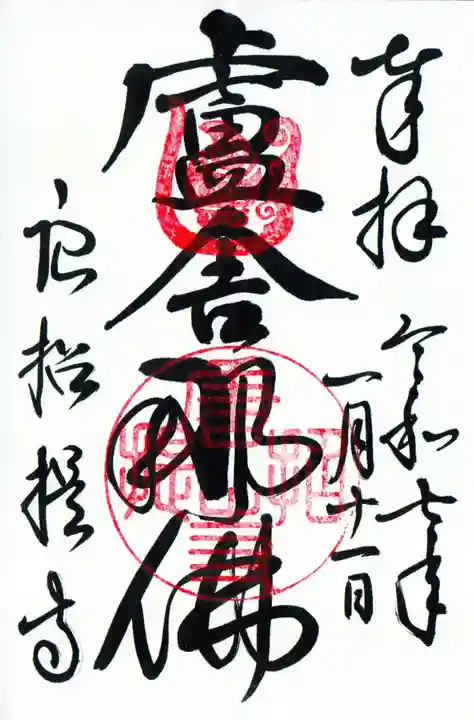 奉拝 令和七年
一月十一日
盧舎那佛
唐招提寺